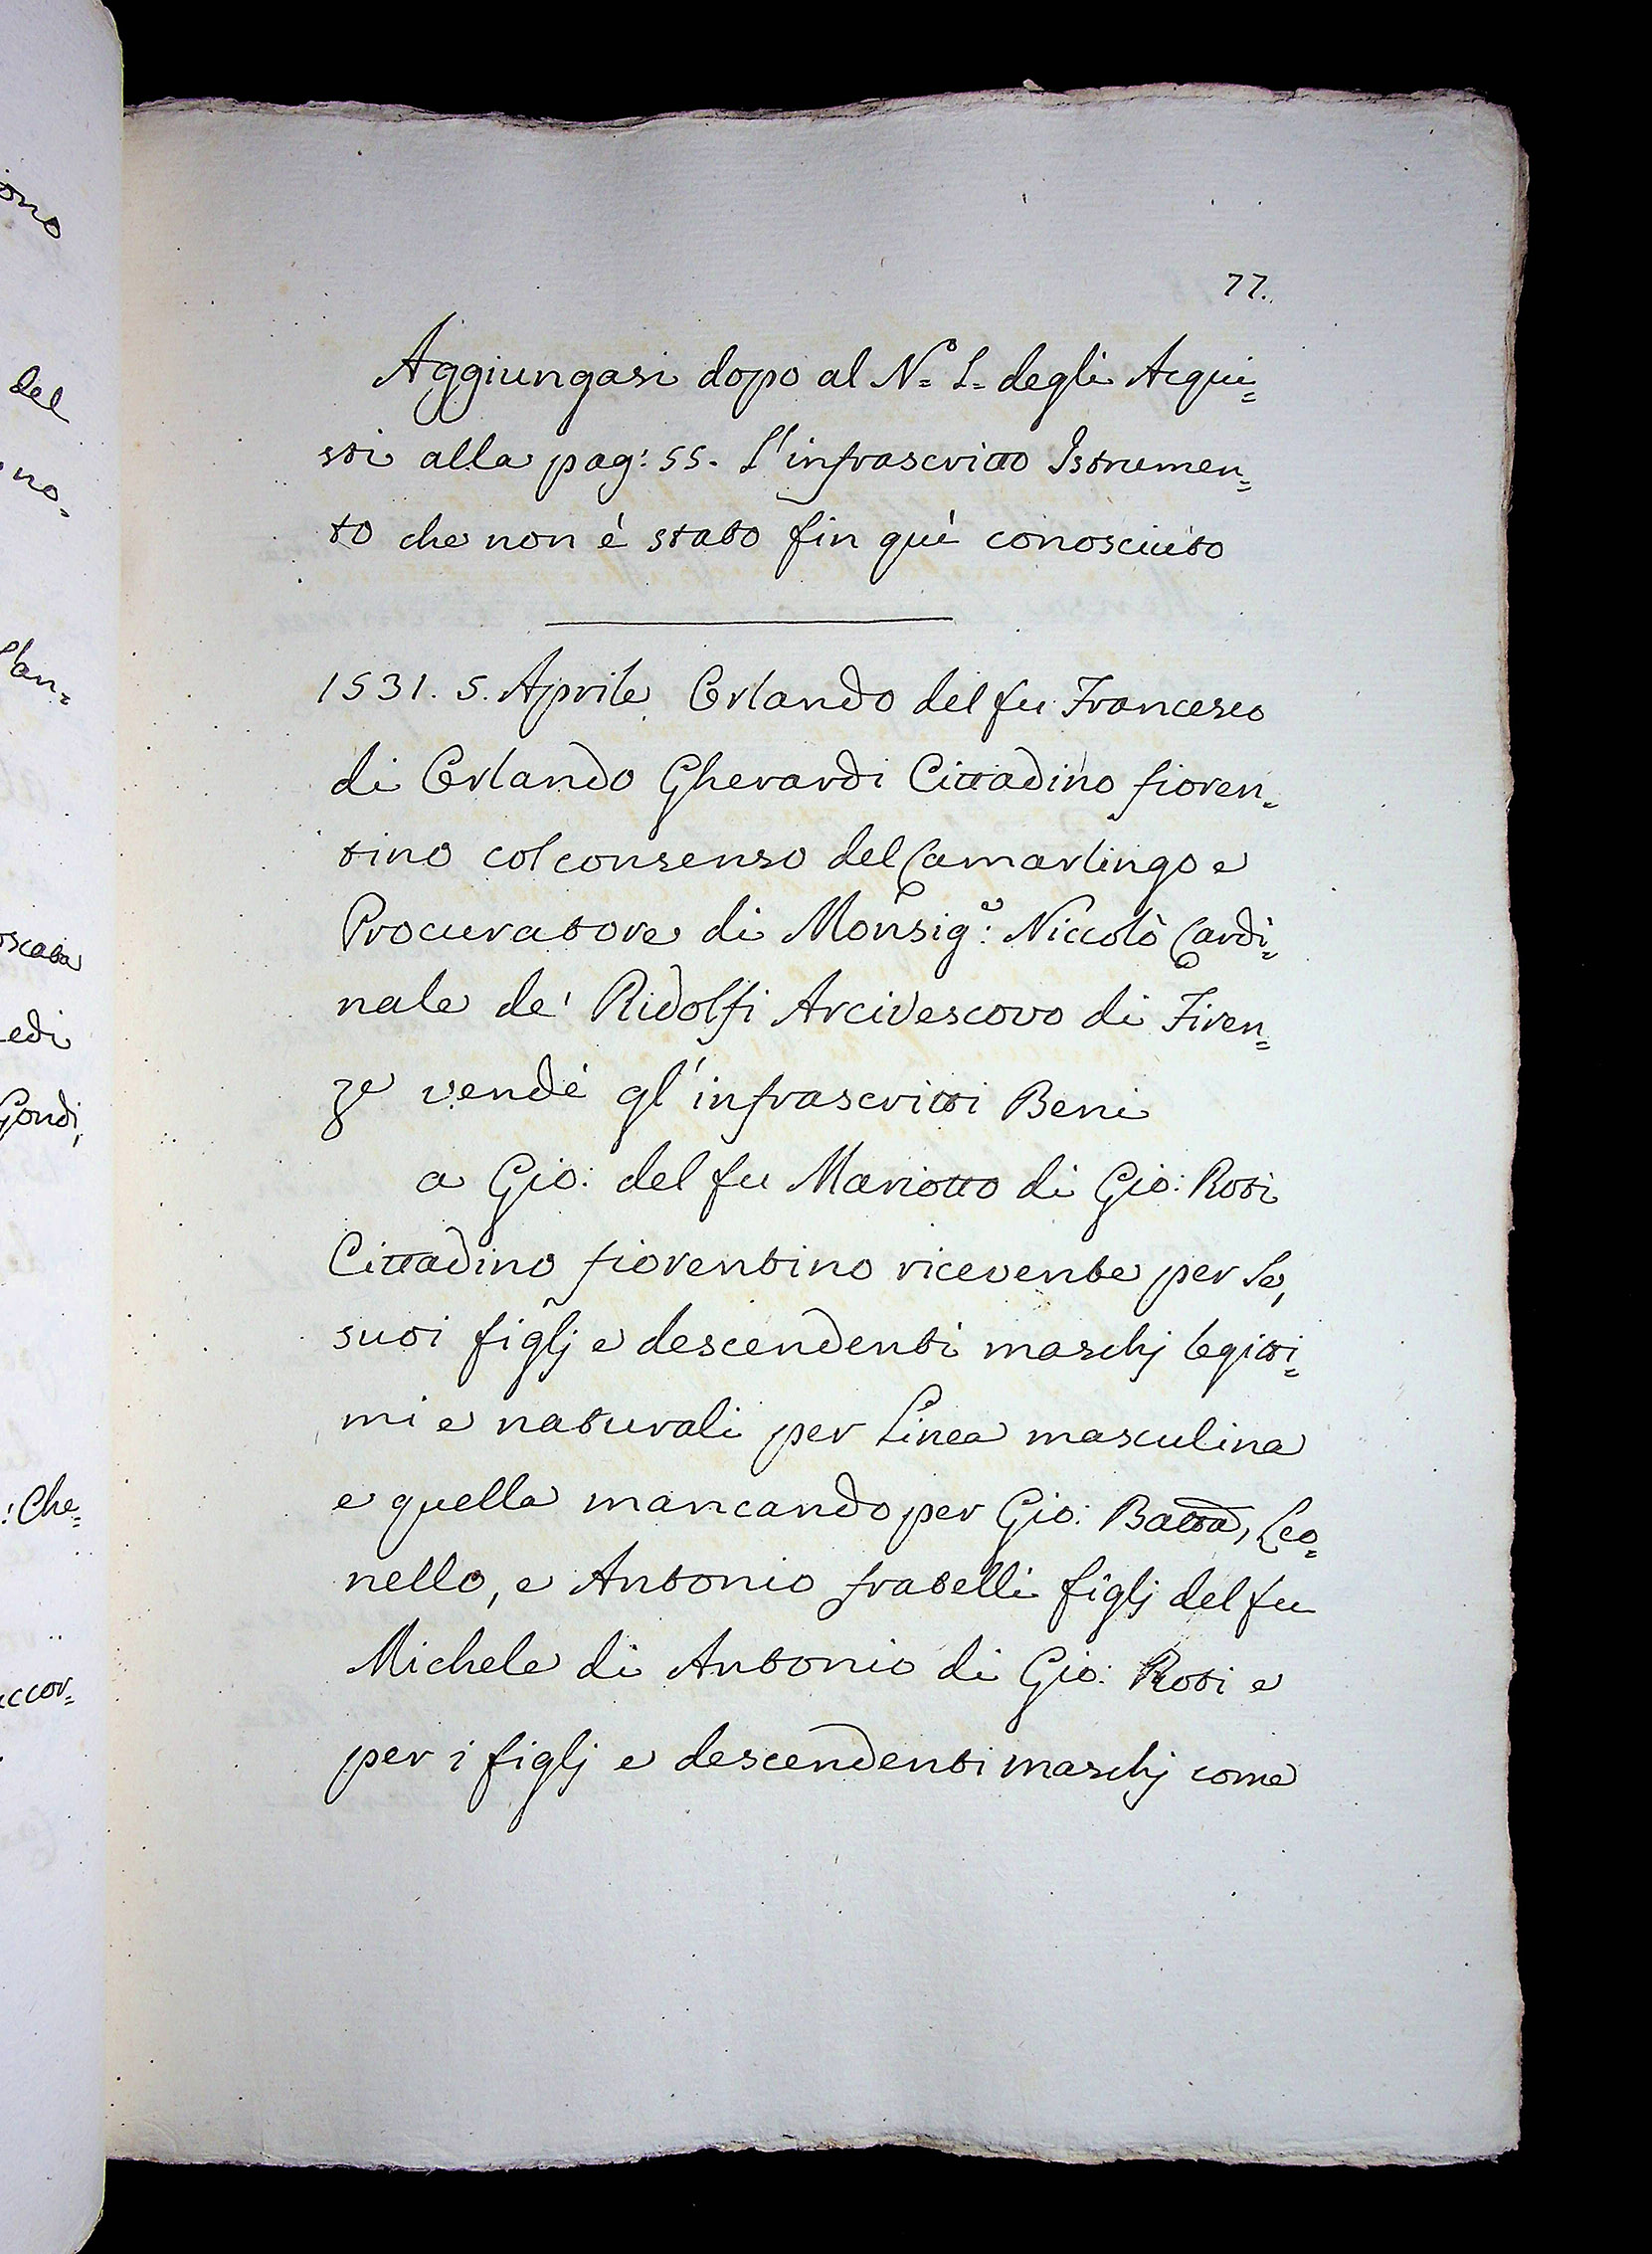 77.
Aggiungasi dopo al N.= L.= degli Acqui=
sti alla pag: 55. l'infrascritto Istrumen=
to che non è stato fin quì conosciuto
1531. 5. Aprile Orlando del fu Francesco
di Orlando Gherardi Cittadino fioren=
tino col consenso del Camarlingo e
Procuratore di Monsig.e: Niccolò Cardi=
nale de' Ridolfi Arcivescovo di Firen=
ze vendé gl'infrascritti Beni
a Gio: del fu Mariotto di Gio: Roti
Cittadino fiorentino ricevente per Se,
suoi figlj e descendenti maschj legitti=
mi e naturali per Linea masculina
e quella mancando per Gio: Batta, Leo=
nello, e Antonio fratelli figlj del fu
Michele di Antonio di Gio: Roti e
per i figlj e descendenti maschj come
ono
del
no=
l'an=
oscata
edi
Gondi,
: Che=
ccor=